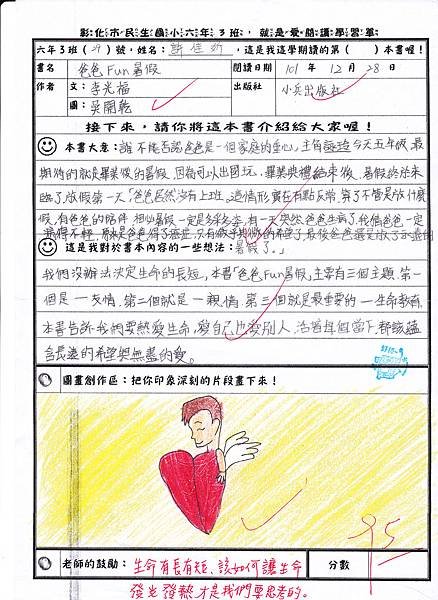 彰化市民生國小六年3班，就是愛閱讀學習單
六年3班( )號，姓名： ，這是我這學期讀的第( )本書喔！
書名 爸爸Fun暑假 閱讀日期 101年12月28日
作者 文：李光福 出版社 小兵出版社
圖：吳開乾
接下來，請你將這本書介紹給大家喔！
本書大意：誰不能否認爸爸是一個家庭的重心，主角 今天五年級，最
期待的就是畢業後的暑假，因為可以出國玩，畢業典禮結束後，暑假終於來
臨了，放假第一天「爸爸居然沒有上班，這情形實在有點反常，算了不管是放什麼
假，有爸爸的陪伴，相必暑假一定是多采多姿，有一天突然爸爸生病了，我們爸爸一定
這是我對於書本內容的一些想法：暑假了。」
我們沒辦法決定生命的長短，本書「爸爸Fun暑假」主要有三個主題，第一
個是一友情，第二個就是一親情，第三個就是最重要的一生命教育，
本書告訴我們要熱愛生命，愛自己也愛別人，活著每個當下，都該蘊
含長遠的希望與無盡的愛。
圖畫創作區：把你印象深刻的片段畫下來！
老師的鼓勵：生命有長有短、該如何讓生命
發光發熱才是我們要思考的。
分數 95